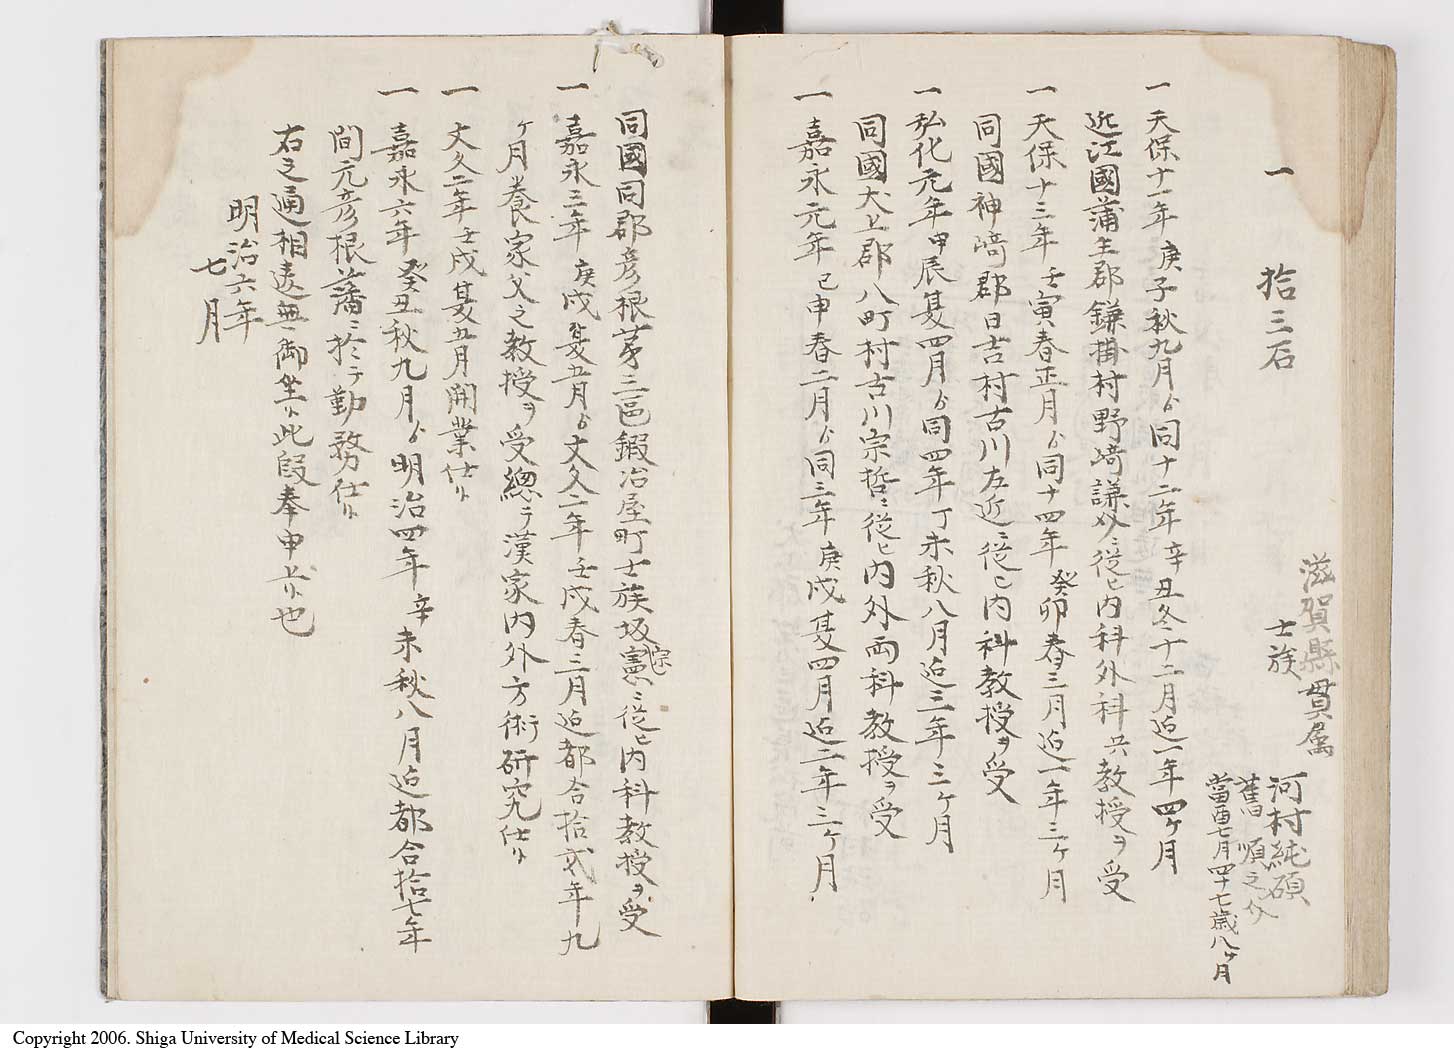 一 拾三石
滋賀縣貫属
士族
河村純碩
舊 順之介
當酉七月四十七歳八ヶ月
一天保十一年庚子秋九月ゟ同十二年辛丑冬十二月迠一年四ケ月
近江國蒲生郡鎌掛村野﨑謙介ニ從ヒ内科外科共教授ヲ受
一天保十三年壬寅春正月ゟ同十四年癸卯春三月迠一年三ケ月
同國神﨑郡日吉村古川左近ニ從ヒ内科教授ヲ受
一弘化元年甲辰夏四月ゟ同四年丁未秋八月迠三年三ケ月
同國犬上郡八町村古川宗哲ニ從ヒ内外両科教授ヲ受
一嘉永元年己申春二月ゟ同三年庚戌夏四月迠二年三ケ月
同國同郡彦根第三區鍜冶屋町士族坂宗憲ニ從ヒ内科教授ヲ受
一嘉永三年庚戌夏五月ゟ文久二年壬戌春三月迠都合拾弐年九
ケ月養家父之教授ヲ受總テ漢家内外方術研究仕候
一文久二年壬戌夏五月開業仕候
一嘉永六年癸丑秋九月ゟ明治四年辛未秋八月迠都合拾七年
間元彦根藩ニ於テ勤務仕候
右之通相違無御坐候此段奉申上候也
明治六年
七月
Copyright 2006. Shiga University of Medical Science Library